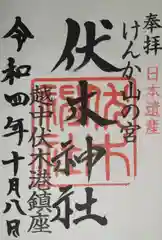 奉拝
けんか山の宮
日本遺産
伏木神社
越中伏木港鎮座
令和四年十月八日